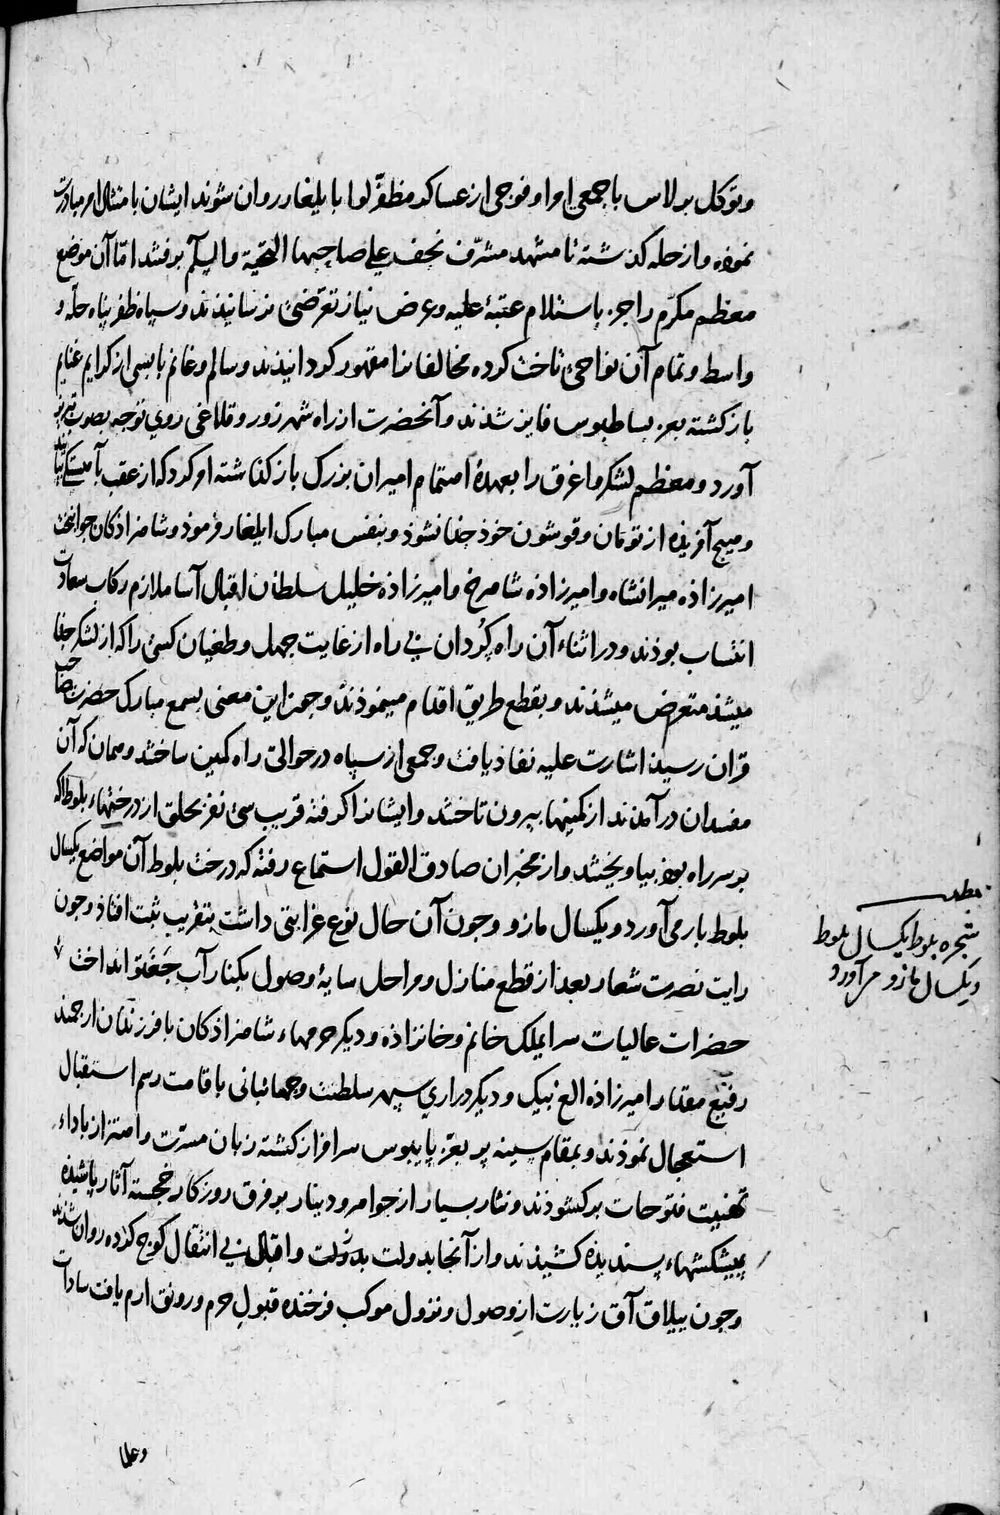 و توکل برلاس با جمعی امرا و فوجی از عساکر مظفر لوا بایلغار روان شوند ایشان بامتثال امر مبادرت
نموده و از حله کذشته تا مشهد مشرّف نجف علی صاحبها التحیة والسلم برفتند امّا آن موضع
معظم مکرّم را جز باستلام عتبۀ علیه و عرض نیاز تعرّضی نرسانیدند و سپاه ظفر پناه حلّه و
واسط و تمام آن نواحی تاخت کرده مخالفانرا مقهور کردانیدند و سالم و غانم با بسی از کرایم غنایم
بازکشته بعز بساط بوس فایز شدند و آنحضرت از راه شهرزور و قلاغی روی توجه بصوب تبریز
آورد و معظم لشکر و اغرق را بعهدۀ اهتمام امیران بزرک بازکذاشته امر کرد که از عقب بآهستکی بیایند
و هیچ آفریده از تومان و قوشون خوذ جدا نشوذ و بنفس مبارک ایلغار فرموذ و شاهزاذکان جوانبخت
امیرزاذه میرانشاه و امیرزاده شاهرخ و امیرزاذه خلیل سلطان اقبال آسا ملازم رکاب سعادت
انتساب بوذند و در اثناء آن راه کُردان بی راه از غایت جهل و طغیان کسی را که از لشکر جدا
میشد متعرض میشدند و بقطع طریق اقدام مینموذند و چون این معنی بسمع مبارک حضرت صاحب
قران رسید اشارت علیه نفاذ یافت و جمعی از سپاه در حوالی راه کمین ساختند و همان که آن
مفسدان درآمدند از کمینها بیرون تاختند و ایشانرا کرفته قریب سی نفر بحلق از درختهاء بلوط که
بر سر راه بوذ بیاویختند و از مخبران صادق القول استماع رفته که درخت بلوط آن مواضع یکسال
بلوط بار می آورد و یکسال مازو و چون آن حال نوع غرابتی داشت بتقریب ثبت افتاذ و چون
رایت نصرت شعار بعد از قطع منازل و مراحل سایۀ وصول بکنار آب جَغَتو انداخت
حضرات عالیات سرایملک خانم و خانزاده و دیکر حرمهاء شاهزاذکان با فرزندان ارجمند
رفیع مقدار امیرزاذه الغ بیک و دیکر دراری سپهر سلطنت و جهانبانی باقامت رسم استقبال
استعجال نموذند و بمقام سینه پر بعز پایبوس سرافراز کشته زبان مسرّت و اهتزاز باداء
تهنیت فتوحات برکشوذند و نثار بسیار از جواهر و دینار بر فرق روزکار خجسته آثار پاشیده
پیشکشهاء پسندیده کشیذند و از آنجا بدولت بدولت و اقبال بی انتقال کوچ کرده روان شدند
و چون ییلاق آق زیارت از وصول و نزول موکب فرخنده قبول حرم و رونق ارم یافت سادات
و علما
مطلب
شجره بلوط یکسال بلوط
و یکسال مازو می آورد